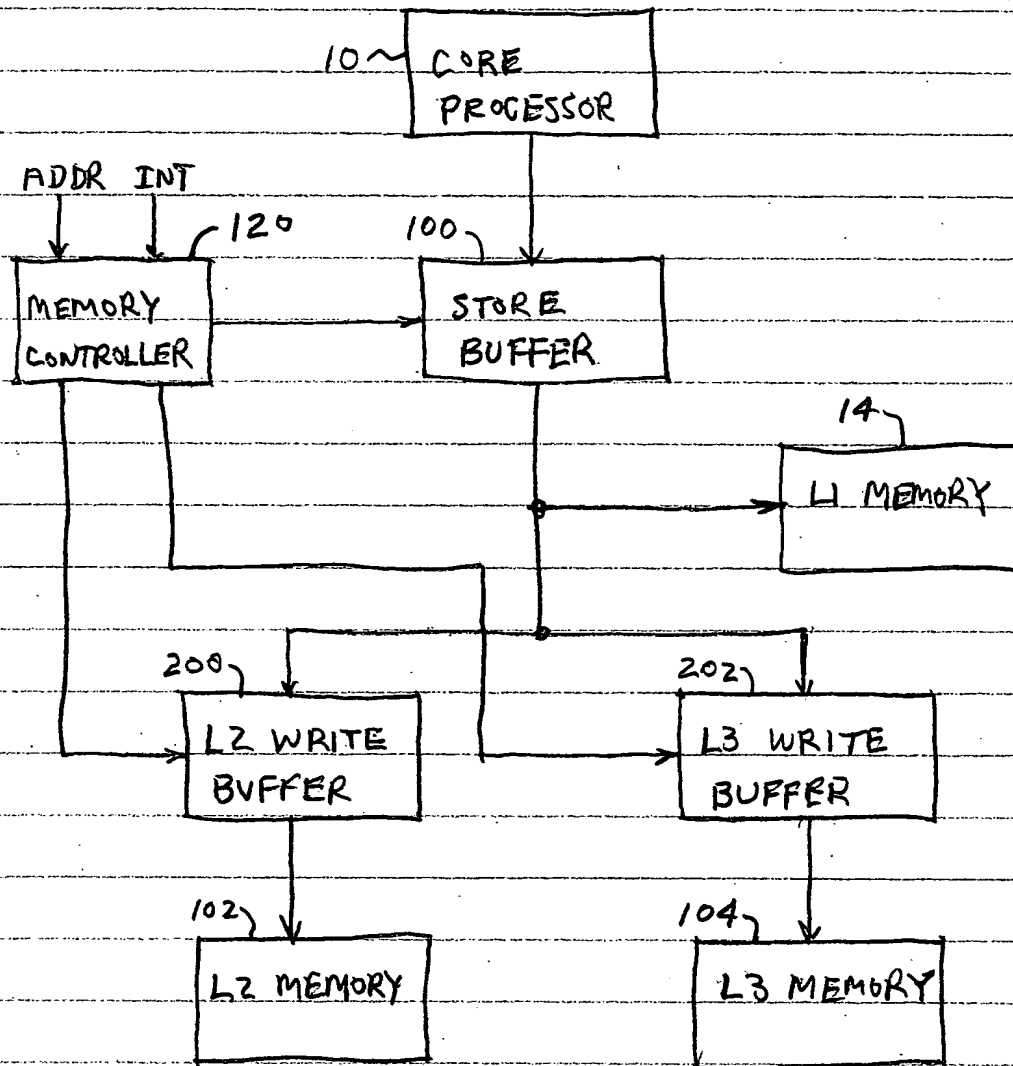 10 CORE
PROCESSOR
ADDR INT
120
100
MEMORY
CONTROLLER
STORE
BUFFER
14
L1 MEMORY
200
202
L2 WRITE
BUFFER
L3 WRITE
BUFFER
102
104
L2 MEMORY
L3 MEMORY